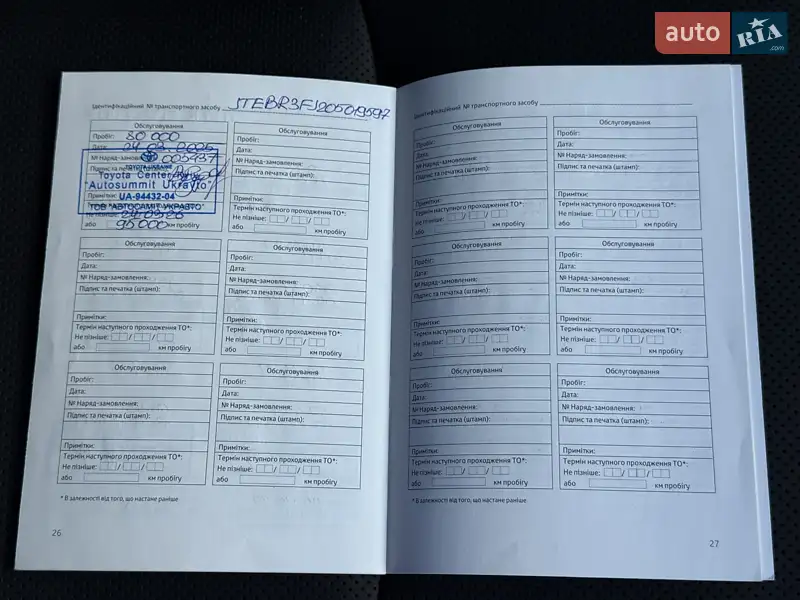 auto RIA .com
Ідентифікаційний № транспортного засобу JTEBR3FJ205019597
Обслуговування
Пробіг: 80 000
Дата:
№ Наряд-замовлення: 005437
TOYOTA UKRAINE
Toyota Center Kyiv
"Autosummit Ukrayto"
Примітки: UA-94432-04
ТОВ "АВТОСАМІТ УКРАВТО"
Не пізніше:
або 95000 км пробігу
Обслуговування
Пробіг:
Дата:
№ Наряд-замовлення:
Підпис та печатка (штамп):
Примітки:
Термін наступного проходження ТО*:
Не пізніше: / /
або км пробігу
Обслуговування
Пробіг:
Дата:
№ Наряд-замовлення:
Підпис та печатка (штамп):
Примітки:
Термін наступного проходження ТО*:
Не пізніше: / /
або км пробігу
Обслуговування
Пробіг:
Дата:
№ Наряд-замовлення:
Підпис та печатка (штамп):
Примітки:
Термін наступного проходження ТО*:
Не пізніше: / /
або км пробігу
Обслуговування
Пробіг:
Дата:
№ Наряд-замовлення:
Підпис та печатка (штамп):
Примітки:
Термін наступного проходження ТО*:
Не пізніше: / /
або км пробігу
Обслуговування
Пробіг:
Дата:
№ Наряд-замовлення:
Підпис та печатка (штамп):
Примітки:
Термін наступного проходження ТО*:
Не пізніше: / /
або км пробігу
* В залежності від того, що настане раніше
26
Ідентифікаційний № транспортного засобу
Обслуговування
Пробіг:
Дата:
№ Наряд-замовлення:
Підпис та печатка (штамп):
Примітки:
Термін наступного проходження ТО*:
Не пізніше: / /
або км пробігу
Обслуговування
Пробіг:
Дата:
№ Наряд-замовлення:
Підпис та печатка (штамп):
Примітки:
Термін наступного проходження ТО*:
Не пізніше: / /
або км пробігу
Обслуговування
Пробіг:
Дата:
№ Наряд-замовлення:
Підпис та печатка (штамп):
Примітки:
Термін наступного проходження ТО*:
Не пізніше: / /
або км пробігу
Обслуговування
Пробіг:
Дата:
№ Наряд-замовлення:
Підпис та печатка (штамп):
Примітки:
Термін наступного проходження ТО*:
Не пізніше: / /
або км пробігу
Обслуговування
Пробіг:
Дата:
№ Наряд-замовлення:
Підпис та печатка (штамп):
Примітки:
Термін наступного проходження ТО*:
Не пізніше: / /
або км пробігу
Обслуговування
Пробіг:
Дата:
№ Наряд-замовлення:
Підпис та печатка (штамп):
Примітки:
Термін наступного проходження ТО*:
Не пізніше: / /
або км пробігу
* В залежності від того, що настане раніше.
27